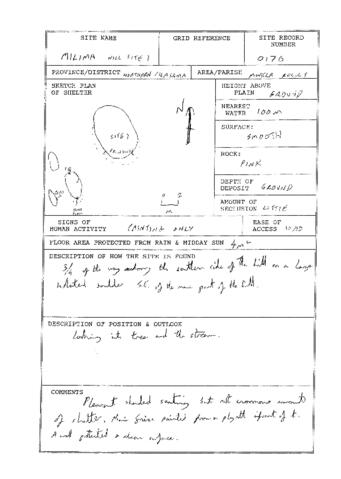 SITE NAME
GRID REFERENCE
SITE RECORD NUMBER
MILIMA HILL SITE 1
0176
PROVINCE/DISTRICT NORTHERN/KASAMA
AREA/PARISH MWELA ROCKS
SKETCH PLAN OF SHELTER
N
SITE 1
HEIGHT ABOVE PLAIN GROUND
NEAREST WATER 100 m
SURFACE:
SMOOTH
ROCK:
PINK
DEPTH OF DEPOSIT GROUND
0 2
m
AMOUNT OF SECLUSION LITTLE
SIGNS OF HUMAN ACTIVITY PAINTING ONLY
EASE OF ACCESS ROAD
FLOOR AREA PROTECTED FROM RAIN & MIDDAY SUN 4 m²
DESCRIPTION OF HOW THE SITE IS FOUND
3/4 of the way along the southern side of the hill on a large
isolated boulder S.E. of the main part of the hill.
DESCRIPTION OF POSITION & OUTLOOK
Looking into trees and the stream.
COMMENTS
Pleasant shaded setting but not enormous amount
of shelter. Main frieze painted from a plinth infront of it.
A well protected & clean surface.